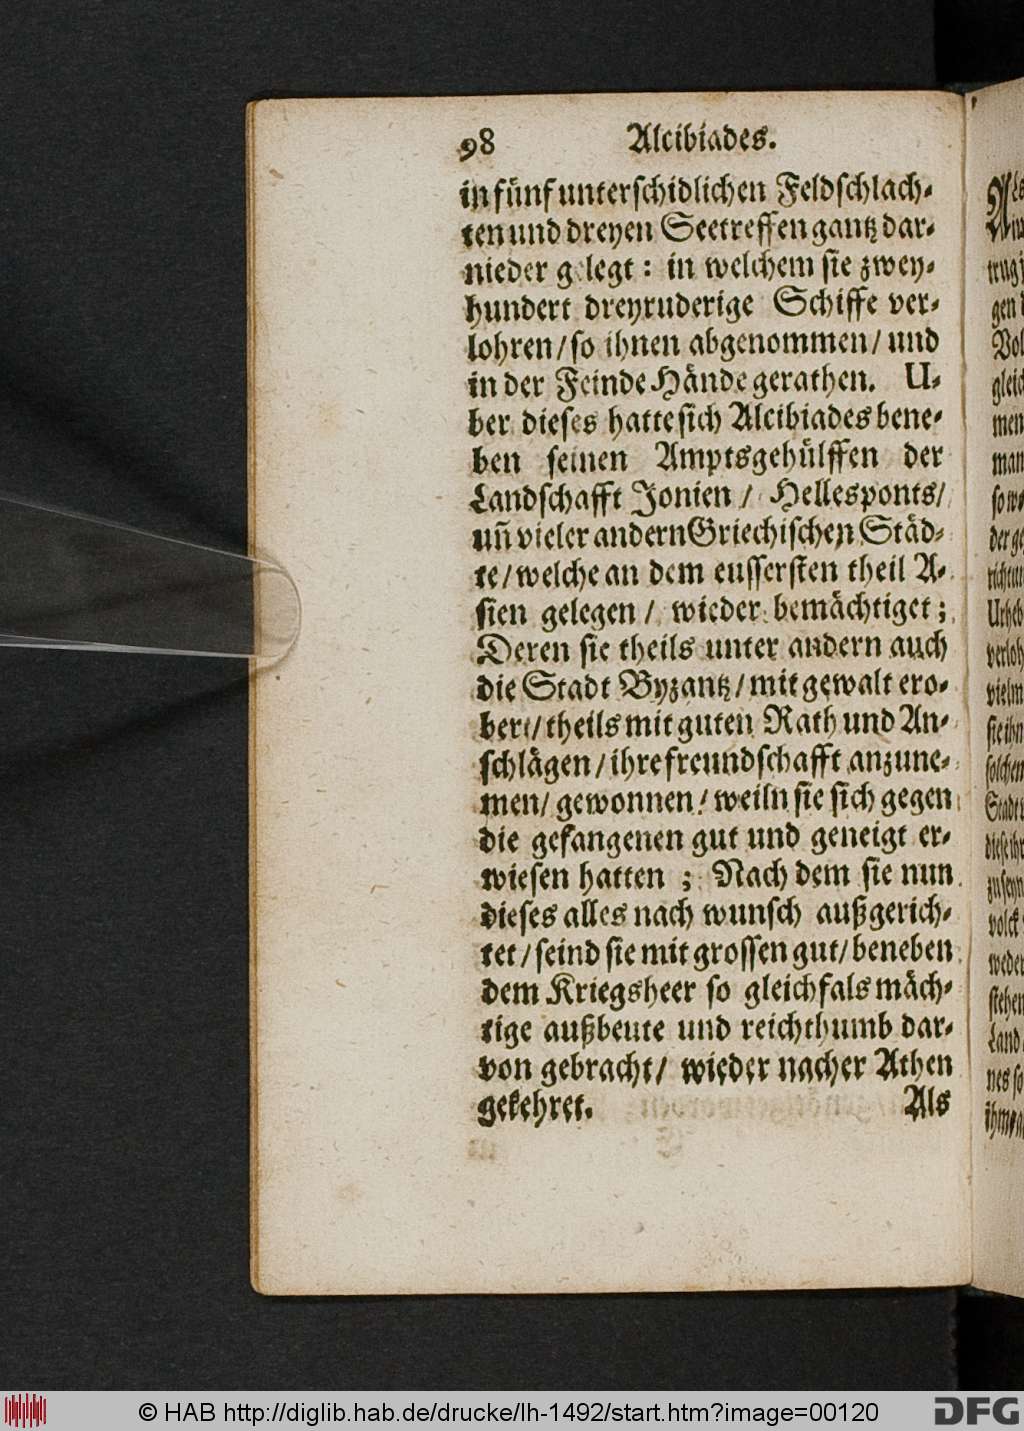 98 Alcibiades.
in fünf unterschidlichen Feldschlach-
ten und dreyen Seetreffen gantz dar-
nieder gelegt: in welchem sie zwey-
hundert dreyruderige Schiffe ver-
lohren/ so ihnen abgenommen/ und
in der Feinde Hände gerathen. U-
ber dieses hatte sich Alcibiades bene-
ben seinen Amptsgehülffen der
Landschafft Jonien/ Hellesponts/
uñ vieler andern Griechischen Städ-
te/ welche an dem eussersten theil A-
sien gelegen/ wieder bemächtiget;
Deren sie theils unter andern auch
die Stadt Byzantz/ mit gewalt ero-
bert/ theils mit guten Rath und An-
schlägen/ ihre freundschafft anzune-
men/ gewonnen/ weiln sie sich gegen
die gefangenen gut und geneigt er-
wiesen hatten; Nach dem sie nun
dieses alles nach wunsch außgerich-
tet/ seind sie mit grossen gut/ beneben
dem Kriegsheer so gleichfals mäch-
tige außbeute und reichthumb dar-
von gebracht/ wieder nacher Athen
gekehret. Als
© HAB http://diglib.hab.de/drucke/lh-1492/start.htm?image=00120
DFG